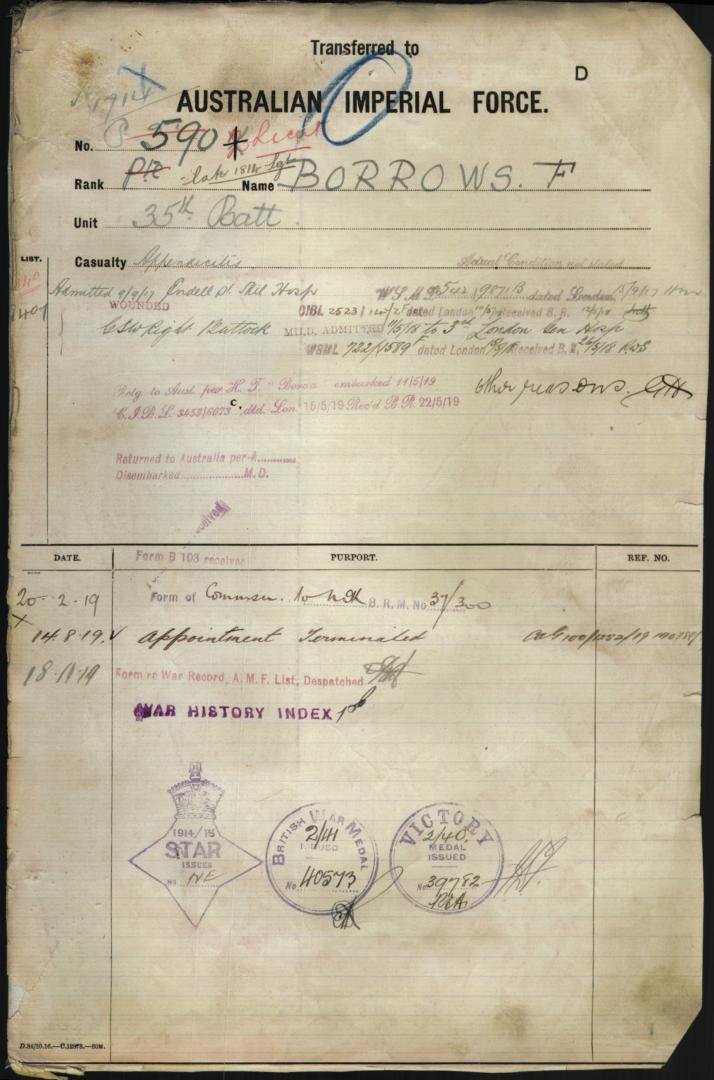 Transferred to
D
AUSTRALIAN IMPERIAL FORCE.
No. 590
Lieut
Rank Pte late 1814 Sgt Name BORROWS. F
Unit 35th Batt.
LIST. Casualty Appendicitis Actual Condition not stated
Admitted 9/9/17 Endell St Mil Hosp dated London 15/9/17
WOUNDED CIBL 2523/ dated London Received B. R.
GSW Right Buttock MILD. ADMITTED 7/5/18 to 3rd London Gen Hosp
WSML 722/1589 dated London Received B. R.
Rtg. to Aust. per H. T. "Boroa" embarked 11/5/19 other reasons.
C.I.B.L. 3453/6073 C. dtd. Lon. 15/5/19 Rec'd B.R. 22/5/19
Returned to Australia per A............
Disembarked....................M.D.
received
DATE. PURPORT. REF. NO.
Form B 103 received
20-2-19 Form of Commsn. to B. R. M. No. 37/300
14.8.19. Appointment Terminated
18.11.19 Form re War Record, A. M. F. List, Despatched
WAR HISTORY INDEX
1914/15
STAR
ISSUED
No NE
BRITISH WAR MEDAL
2/41
ISSUED
No. 40573
VICTORY
2/40.
MEDAL
ISSUED
No. 39782
D.84/10.16.—C.12978.—50M.